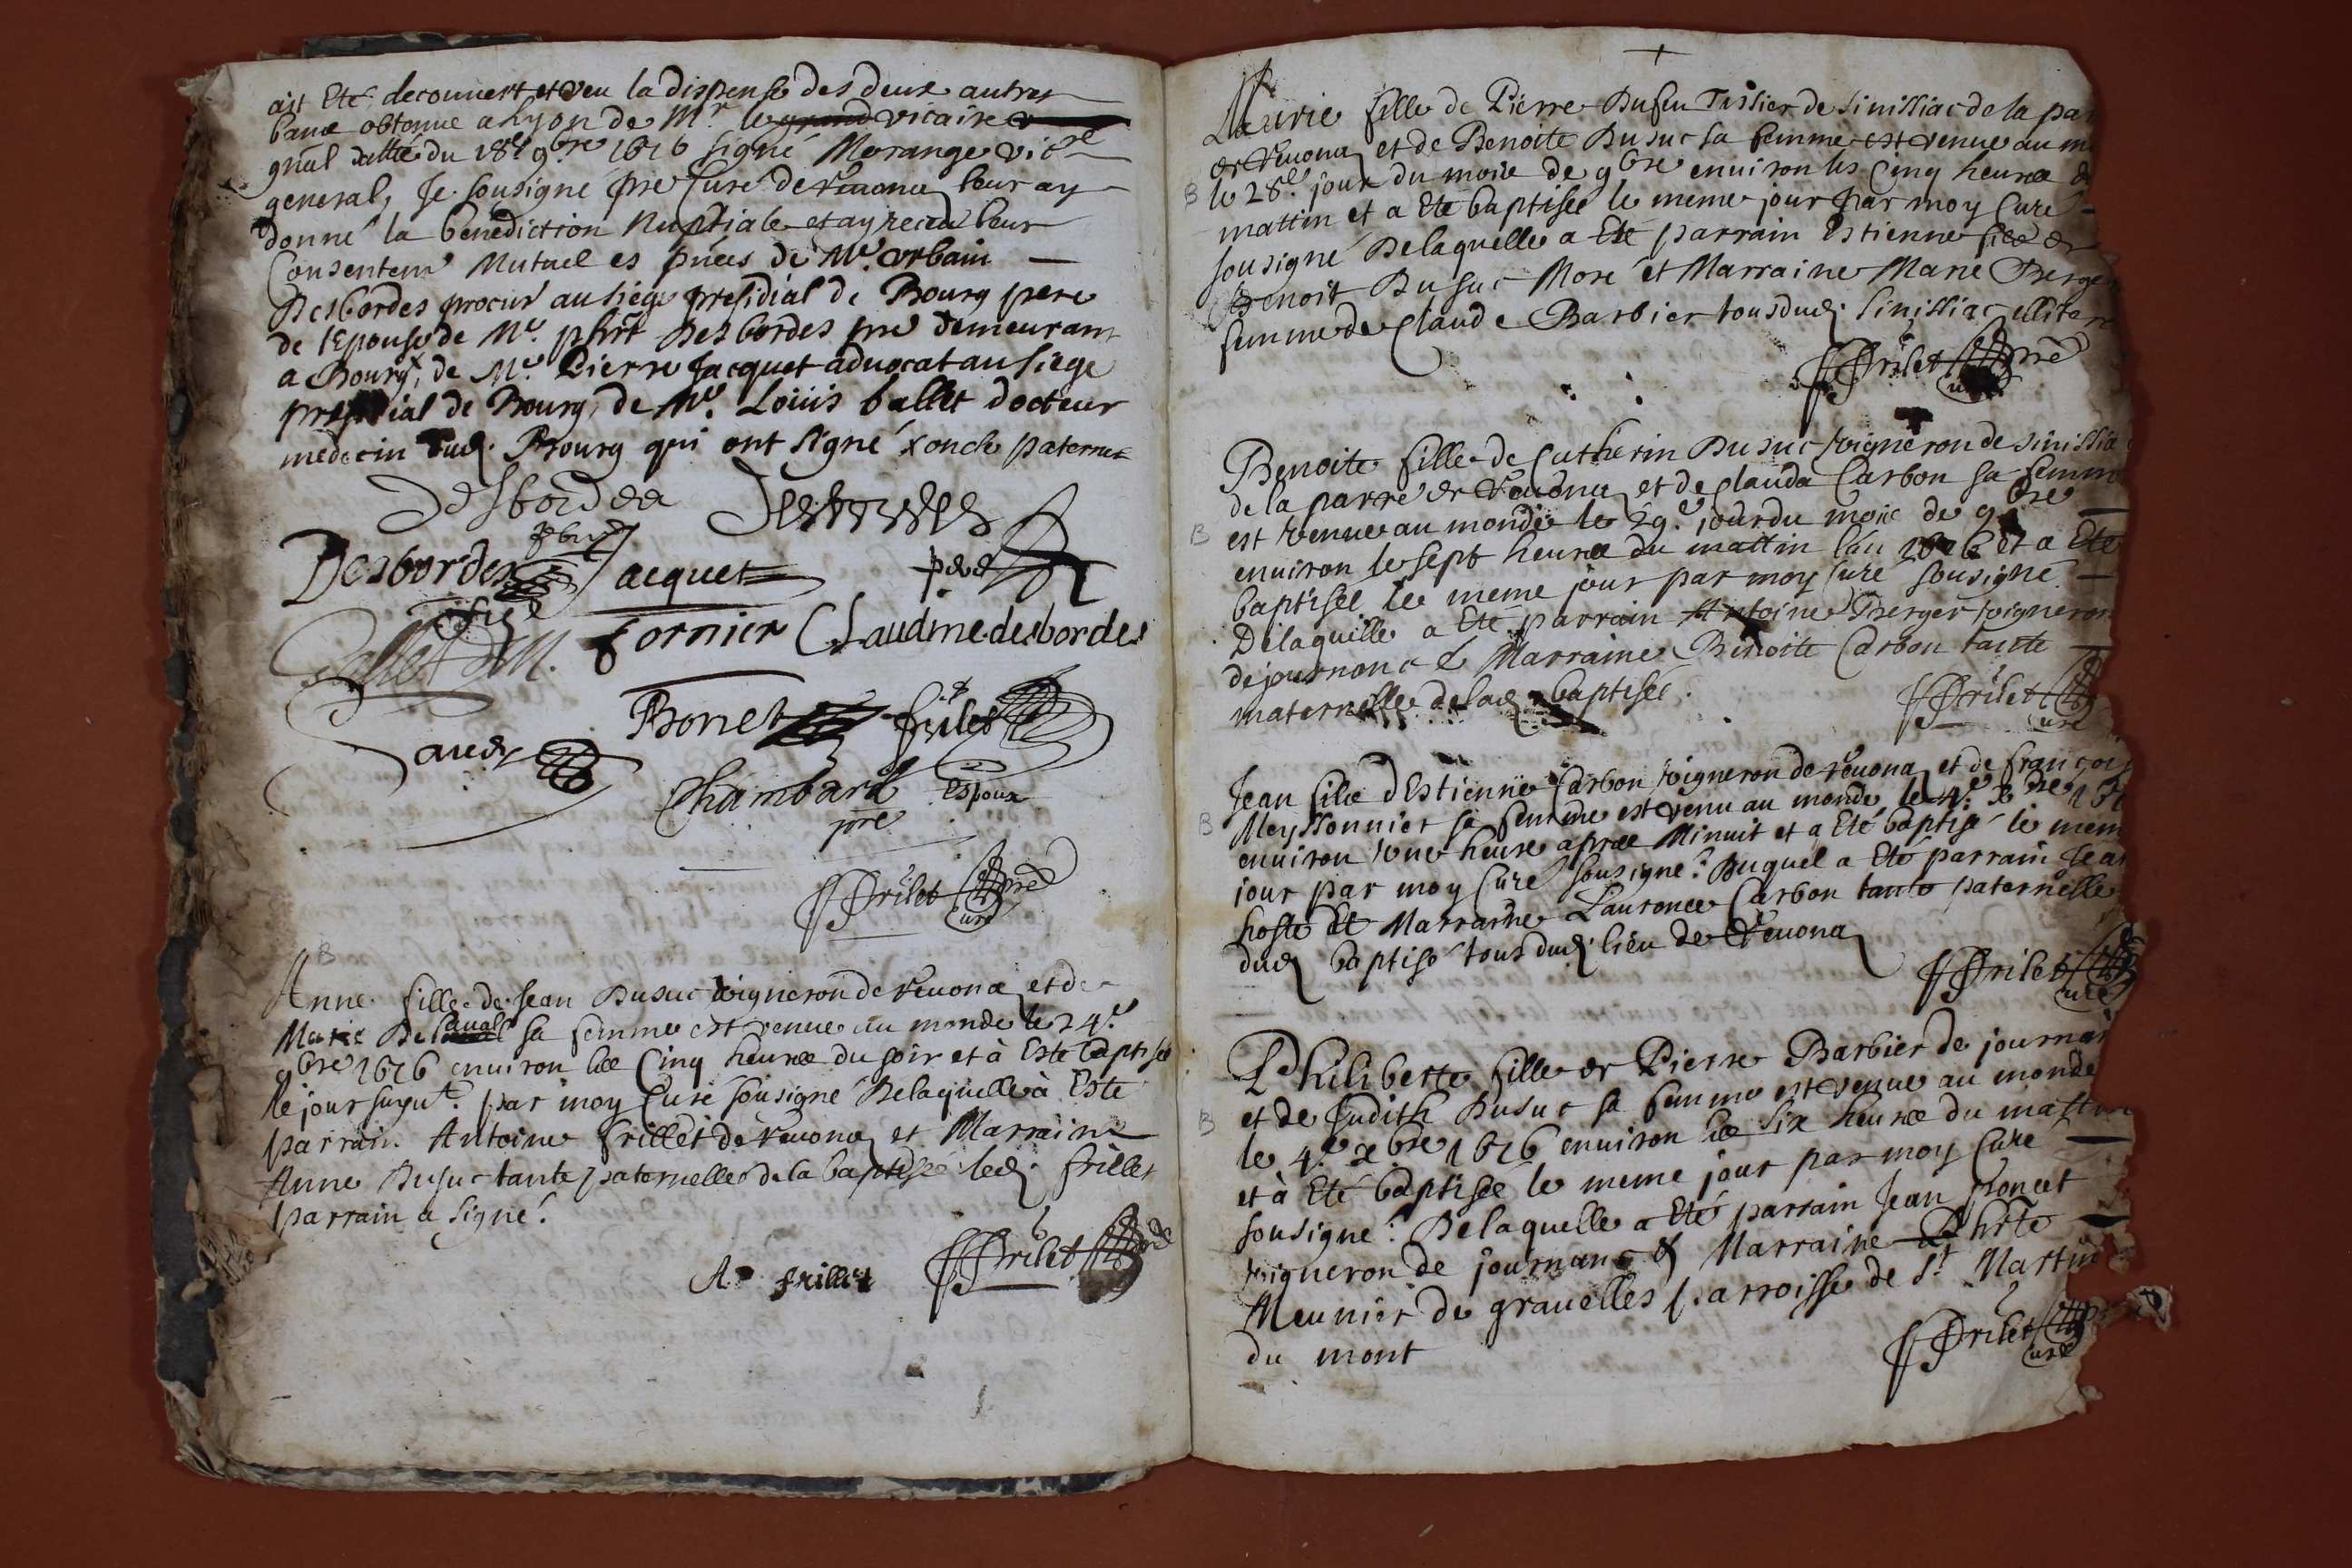 ait Eté decouvert et veu la dispense des deux autres
bans obtenue a Lyon de Mr. le grand vicaire
gñal datté du 18e 9bre 1676 signé Morange vicre
general, Je sousigné pre Curé de revona leur ay
donné la benediction Nuptiale et ay receu leur
Consentemt Mutuel es pñces de Me. Urbain
Desbordes procur au siege presidial de Bourg pere
de l'Epouse de Me. phirt Desbordes pre demeurant
a Bourg x, de Me. Pierre Jacquet advocat au siege
presidial de Bourg, de Me. Loüis ballet docteur
medecin dud. Bourg qui ont signé x oncle paternel
Desbordes
Desbordes Jacquet pere
Ballet D M. Fornier Claudine desbordes
Bonet frilet
Chambard Espoux
pre
F Frilet pre
Curé
B
Anne fille de Jean Dusuc vigneron de revona et de
Marie Delaval sa femme est venue au monde le 24e.
9bre 1676 environ les Cinq heures du soir et à Esté baptisée
le jour suyvt. par moy Curé sousigné Delaquelle à Esté
parrain Antoine frillet de revona et Marraine
Anne Dusuc tante paternelle de la baptisée led. frillet
parrain a signé.
A. frillet F Frilet pre
+
Laurie fille de Pierre Dufeu Tissier de Sinissiac de la par
de revona et de Benoite Dusuc sa femme est venue au mo
B le 28e. jour du mois de 9bre environ les Cinq heures d
mattin et a Eté baptisée le meme jour par moy Curé
sousigné Delaquelle a Eté parrain Estienne fils de
Benoit Dusuc More et Marraine Marie Berger
femme de Claude Barbier tous dud. Sinissiac illiter
F Frilet pre
Curé
Benoite fille de Catherin Dusuc vigneron de sinissia
de la parre de revona et de Clauda Carbon sa femme
B est venue au monde le 29e. jour du mois de 9bre
environ le sept heures du mattin l'an 1676 et a Eté
baptisée le meme jour par moy Curé sousigné
Delaquelle a Eté parrain Antoine Berger vigneron
de journans & Marraine Benoite Carbon tante
maternelle de lad. baptisée.
F Frilet
Curé
Jean fils d'Estienne Carbon vigneron de revona et de françoi
B Meyssonnier sa femme est venu au monde le 4e. xbre 167
environ une heure apres Minuit et a Eté baptisé le mem
jour par moy Curé sousigné: Duquel a Eté parrain Jea
hoste Et Marraine Laurence Carbon tante paternelle
dud baptisé tous dud. lieu de Revona
F Frilet
Curé
Philiberte fille de Pierre Barbier de journan
et de Judith Dusuc sa femme est venue au monde
B le 4e xbre 1676 environ les six heures du mattin
et à Eté baptisée le meme jour par moy Curé
sousigné: Delaquelle a Eté parrain Jean poncet
vigneron de journans & Marraine Phirte
Meunier de gravelles parroisse de St Martin
du mont
F Frilet p
Curé